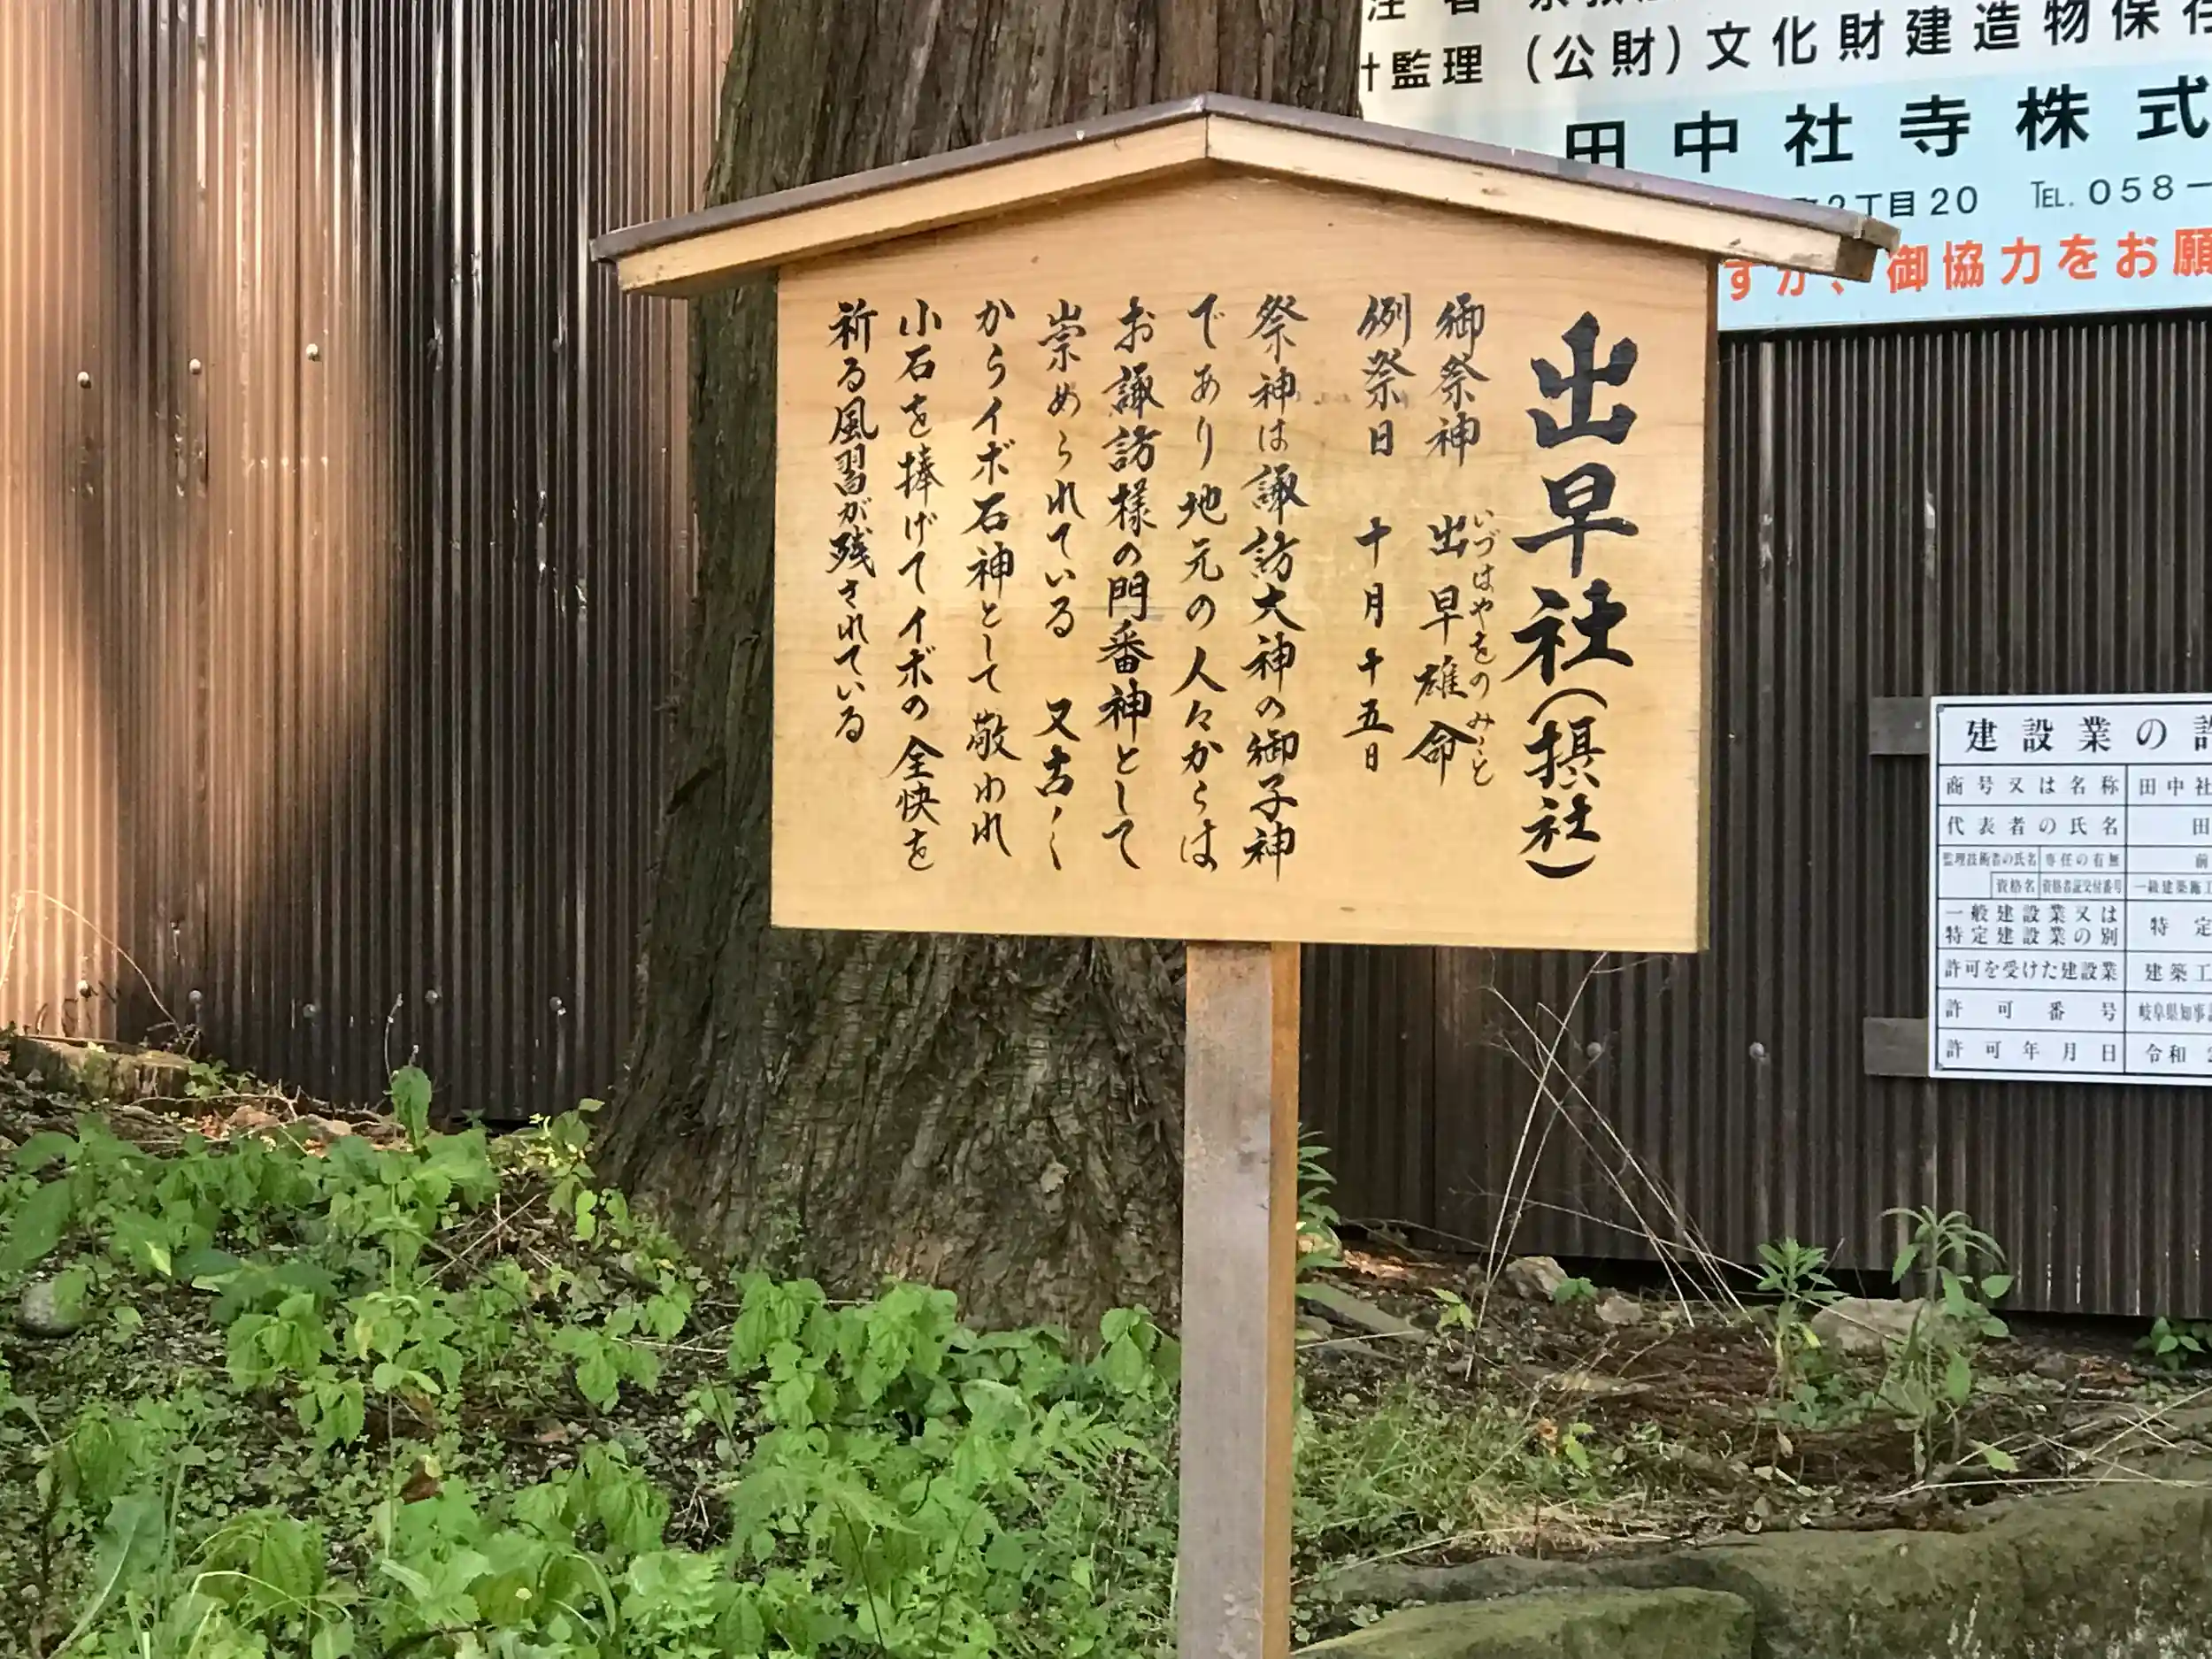 出早社(摂社)
御祭神 出早雄命
いづはやをのみこと
例祭日 十月十五日
祭神は諏訪大神の御子神
であり地元の人々からは
お諏訪様の門番神として
崇められている 又古く
からイボ石神として敬われ
小石を捧げてイボの全快を
祈る風習が残されている
監理 (公財)文化財建造物保存
田中社寺株式
2丁目20 TEL.058-
すが、御協力をお願
建設業の許
商号又は名称 田中社
代表者の氏名 田
監理技術者の氏名 専任の有無 前
資格名 資格者証交付番号 一級建築施工
一般建設業又は
特定建設業の別 特定
許可を受けた建設業 建築工
許可番号 岐阜県知事
許可年月日 令和2